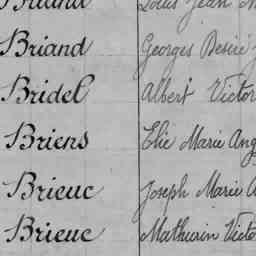 Briand Louis Jean
Briand Georges Désiré
Bridel Albert Victor
Briens Elie Marie Ang
Brieuc Joseph Marie A
Brieuc Mathurin Victo